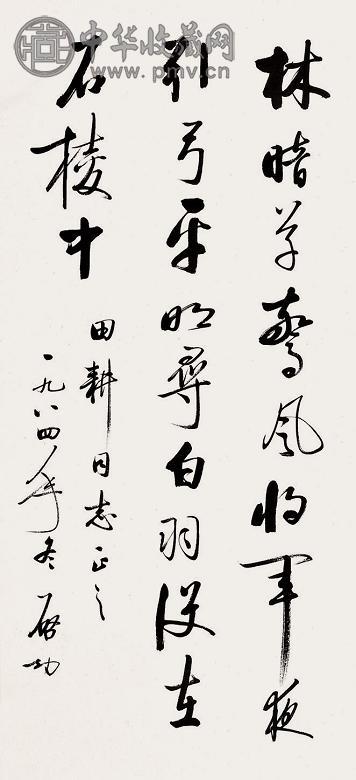 林暗草惊风将军夜
引弓平明寻白羽没在
石棱中
田耕同志正之
一九八四年冬 启功
中华收藏网
www.pmv.cn